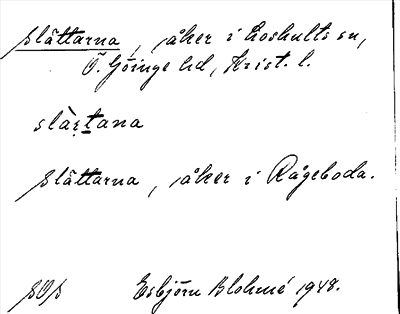 Slåttarna, åker i Loshults sn,
Ö. Göinge hd, Krist. l.
slàṛt̲ana
Slåttarna, åker i Rågeboda.
SOS Esbjörn Blohmé 1948.